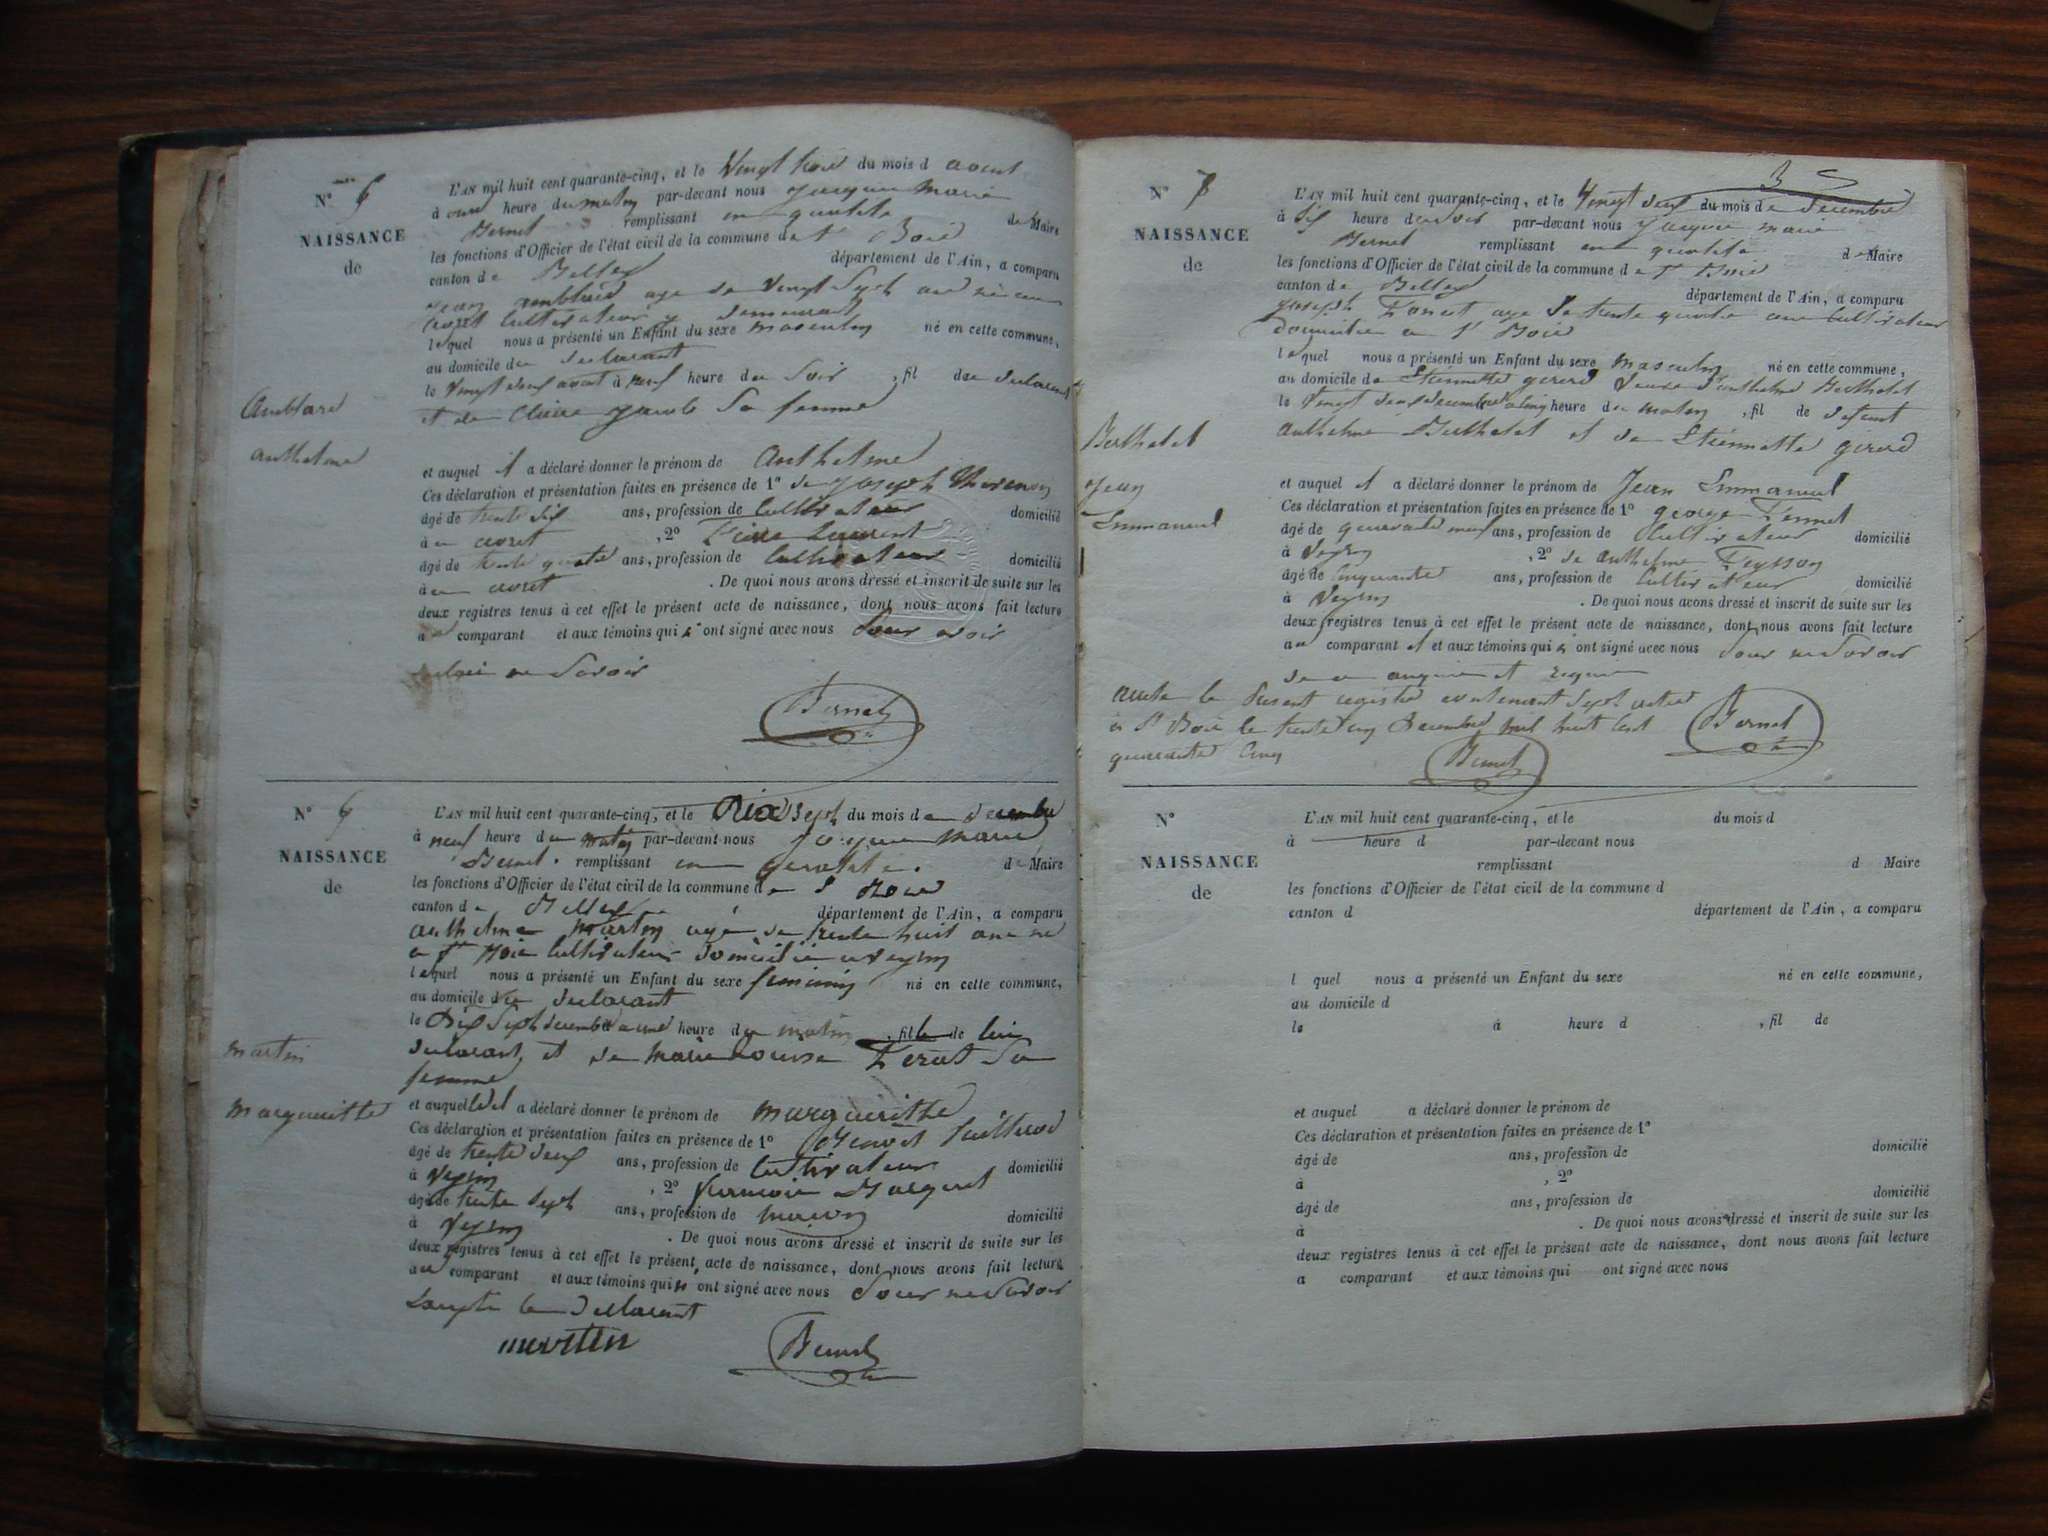 N° 5
NAISSANCE
de
Amblard
anthelme
L'AN mil huit cent quarante-cinq, et le Vingt trois du mois d aout
à onze heure du matin par-devant nous jacques marie
Bernet remplissant en qualité de Maire
les fonctions d'Officier de l'état civil de la commune de St Bois
canton de Belley département de l'Ain, a comparu
jean amblard age de Vingt Sept ans né
cultivateur y demeurant
lequel nous a présenté un Enfant du sexe masculin né en cette commune,
au domicile du declarant
le Vingt deux aout à neuf heure du Soir , fil du declarant
et de Claire jacob Sa femme
et auquel il a déclaré donner le prénom de Anthelme
Ces déclaration et présentation faites en présence de 1° de joseph
âgé de trente six ans, profession de Cultivateur domicilié
à , 2° Laurent
âgé de trente quatre ans, profession de Cultivateur domicilié
à . De quoi nous avons dressé et inscrit de suite sur les
deux registres tenus à cet effet le présent acte de naissance, dont nous avons fait lecture
a comparant et aux témoins qui ont signé avec nous
ne Savoir
Bernet
N° 6
NAISSANCE
de
martin
margueritte
L'AN mil huit cent quarante-cinq, et le Dix Sept du mois de decembre
à neuf heure du matin par-devant nous jacques marie
Bernet remplissant en qualité de Maire
les fonctions d'Officier de l'état civil de la commune de St Bois
canton de Belley département de l'Ain, a comparu
anthelme martin agé de trente huit ans né
a St Bois Cultivateur domicilié a veyrin
lequel nous a présenté un Enfant du sexe feminin né en cette commune,
au domicile du declarant
le Dix Sept decembre a une heure du matin , fille de lui
declarant et de marie Louise Sa
femme
et auquel il a déclaré donner le prénom de marguerithe
Ces déclaration et présentation faites en présence de 1° Benoit
âgé de trente deux ans, profession de Cultivateur domicilié
à Veyrin , 2° francois
âgé de trente Sept ans, profession de macon domicilié
à Veyrin . De quoi nous avons dressé et inscrit de suite sur les
deux registres tenus à cet effet le présent acte de naissance, dont nous avons fait lecture
au comparant et aux témoins qui n' ont signé avec nous pour ne Savoir
le declarant
martin
Bernet
3
N° 7
NAISSANCE
de
Berthelet
Jean
Emmanuel
L'AN mil huit cent quarante-cinq, et le Vingt deux du mois de decembre
à Six heure du soir par-devant nous jacques marie
Bernet remplissant en qualité de Maire
les fonctions d'Officier de l'état civil de la commune de St Bois
canton de Belley département de l'Ain, a comparu
joseph age de trente quatre ans Cultivateur
domicilié a St Bois
lequel nous a présenté un Enfant du sexe masculin né en cette commune,
au domicile de Etiennette gererd Veuve d'anthelme Berthelet
le Vingt deux decembre a cinq heure du matin , fil de defunt
anthelme Berthelet et de Etiennette gererd
et auquel il a déclaré donner le prénom de Jean Emmanuel
Ces déclaration et présentation faites en présence de 1° george
âgé de quarante neuf ans, profession de Cultivateur domicilié
à Veyrin , 2° de anthelme Teysson
âgé de Cinquante ans, profession de Cultivateur domicilié
à Veyrin . De quoi nous avons dressé et inscrit de suite sur les
deux registres tenus à cet effet le présent acte de naissance, dont nous avons fait lecture
au comparant et aux témoins qui n' ont signé avec nous pour ne Savoir
de ce enquis et requis
arrete le présent registre contenant Sept actes
a St Bois le trente un decembre mil huit cent
quarante Cinq
Bernet
Bernet
N°
NAISSANCE
de
L'AN mil huit cent quarante-cinq, et le du mois d
à heure d par-devant nous
remplissant d Maire
les fonctions d'Officier de l'état civil de la commune d
canton d département de l'Ain, a comparu
l quel nous a présenté un Enfant du sexe né en cette commune,
au domicile d
le à heure d , fil de
et auquel a déclaré donner le prénom de
Ces déclaration et présentation faites en présence de 1°
âgé de ans, profession de domicilié
à , 2°
âgé de ans, profession de domicilié
à . De quoi nous avons dressé et inscrit de suite sur les
deux registres tenus à cet effet le présent acte de naissance, dont nous avons fait lecture
a comparant et aux témoins qui ont signé avec nous